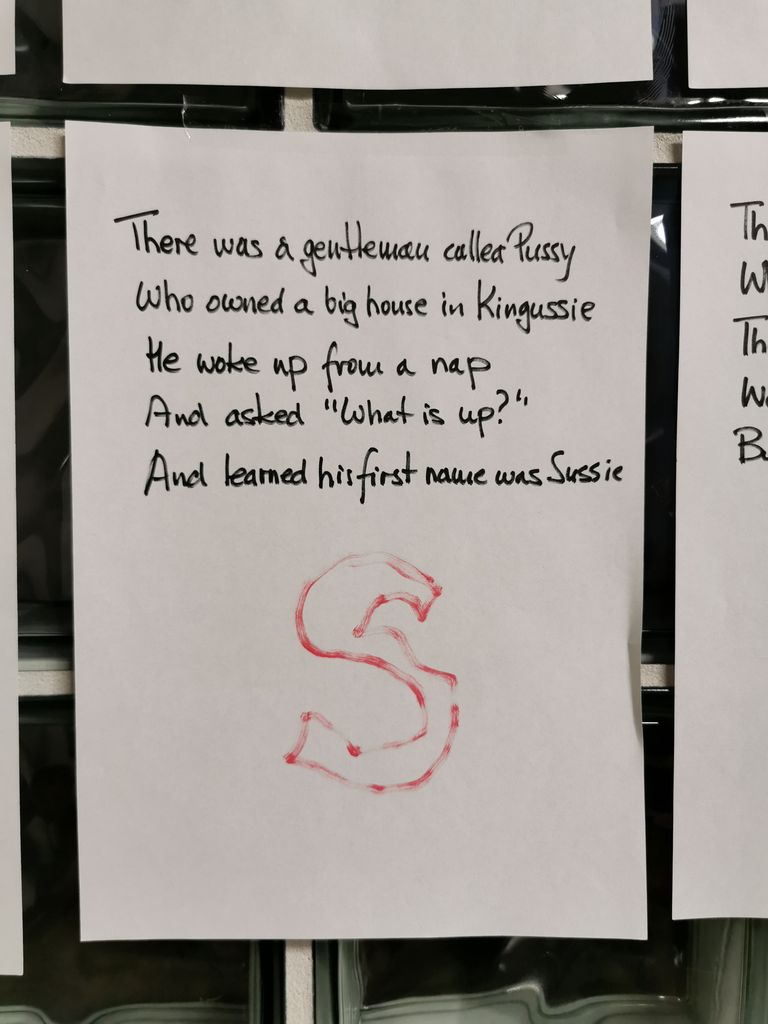 There was a gentleman called Pussy
Who owned a big house in Kingussie
He woke up from a nap
And asked "What is up?"
And learned his first name was Sussie
S
Th
W
Th
Wa
Bu